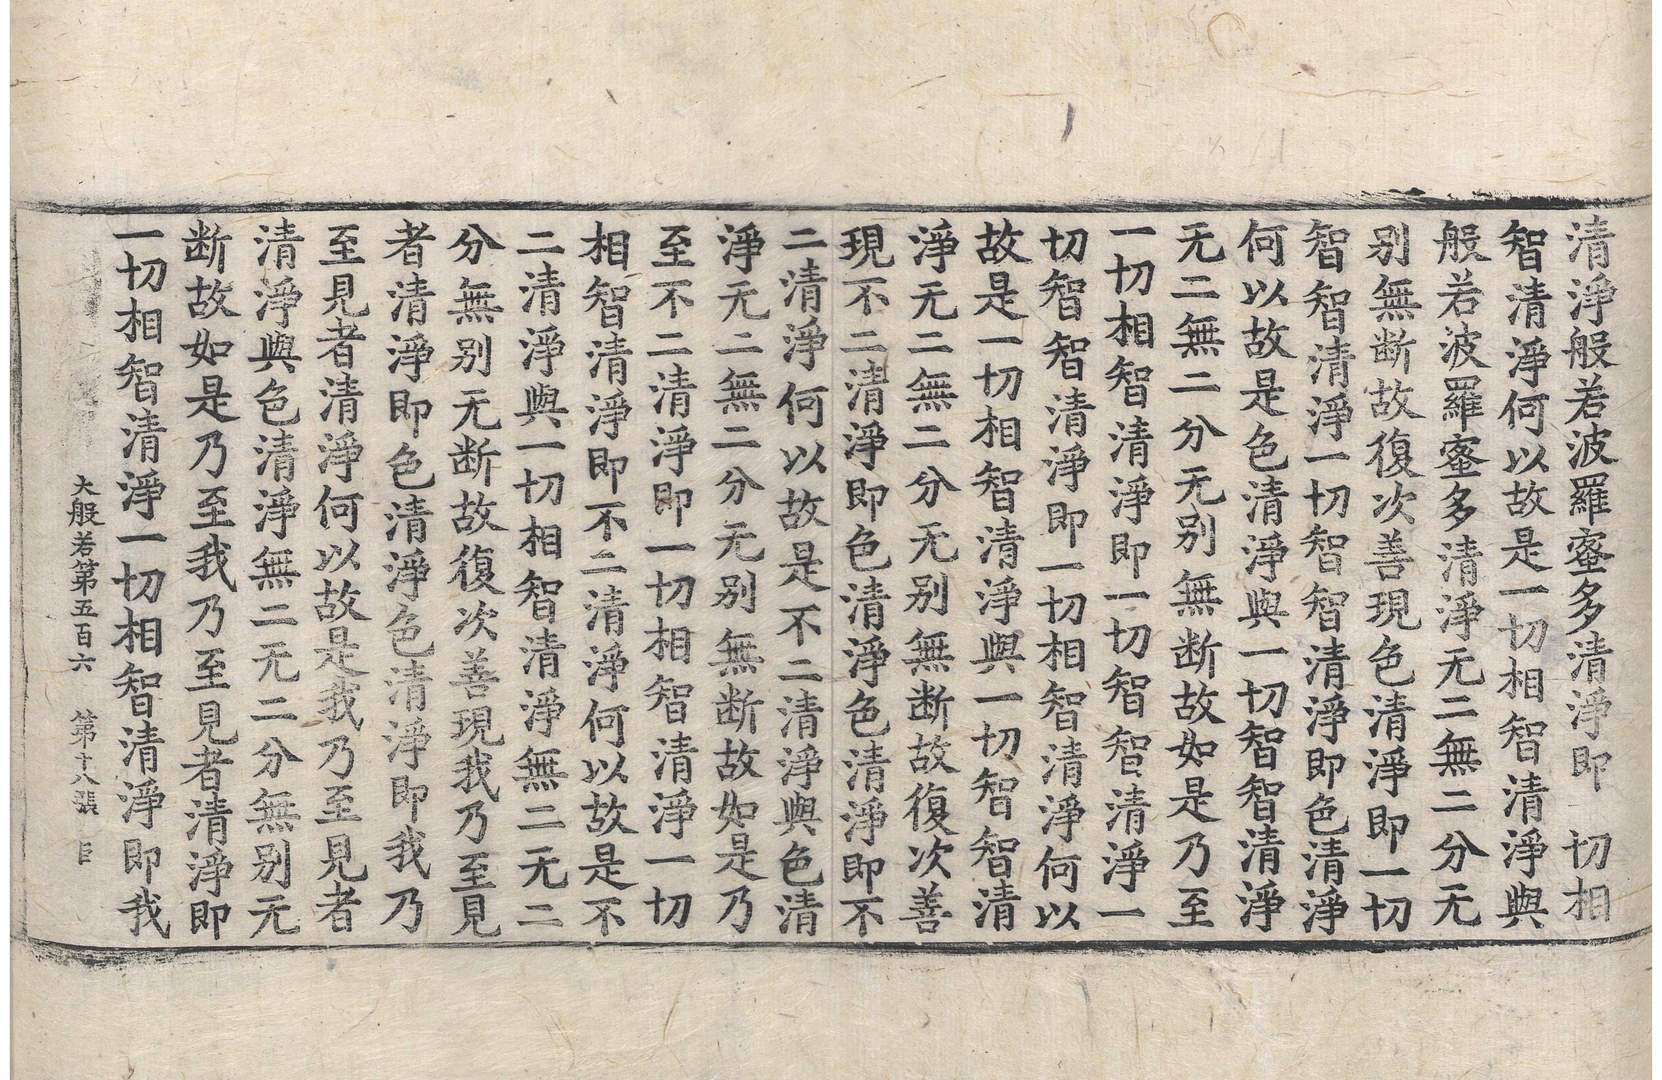 清淨般若波羅蜜多清淨即 切相
智清淨何以故是一切相智清淨與
般若波羅蜜多清淨无二無二分无
別無断故復次善現色清淨即一切
智智清淨一切智智清淨即色清淨
何以故是色清淨與一切智智清淨
无二無二分无別無断故如是乃至
一切相智清淨即一切智智清淨一
切智智清淨即一切相智清淨何以
故是一切相智清淨與一切智智清
淨无二無二分无別無断故復次善
現不二清淨即色清淨色清淨即不
二清淨何以故是不二清淨與色清
淨无二無二分无別無断故如是乃
至不二清淨即一切相智清淨一切
相智清淨即不二清淨何以故是不
二清淨與一切相智清淨無二无二
分無別无断故復次善現我乃至見
者清淨即色清淨色清淨即我乃
至見者清淨何以故是我乃至見者
清淨與色清淨無二无二分無別无
断故如是乃至我乃至見者清淨即
一切相智清淨一切相智清淨即我
大般若第五百六 第十八張